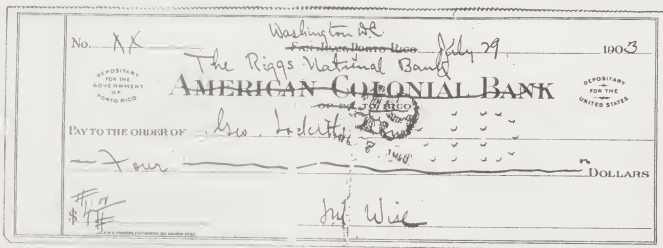 Washington DC
No. XX SAN JUAN PORTO RICO July 29, 1903
The Riggs National Bank
DEPOSITARY FOR THE GOVERNMENT OF PORTO RICO
AMERICAN COLONIAL BANK
DEPOSITARY FOR THE UNITED STATES
OF PORTO RICO
PAY TO THE ORDER OF Geo. Lockett
Four DOLLARS
$ 4
Wise